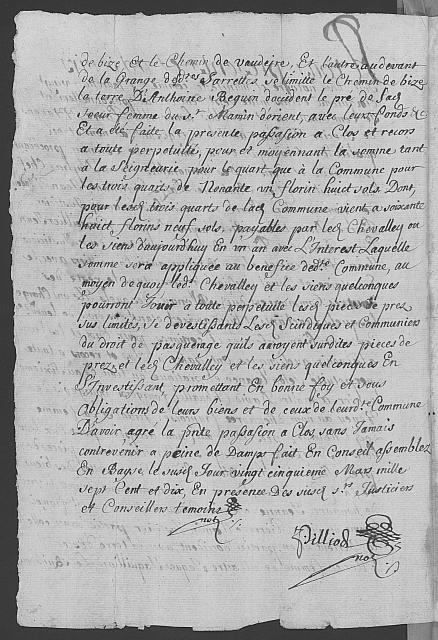 de bize et le Chemin de vaudeyre, Et L'autre audevant
de la Grange desd.es Jarreths se limitte le Chemin de bize
la terre D'Anthoine Beguin doccident le pré de lad.
Soeur femme du s.r Mamin dorient, avec leurs fonds &c
Et a été faite la presente passasion a Clos et recors
a toute perpetuité, pour et moyennant la somme tant
à la Seigneurie pour le quart que à la Commune pour
les trois quarts de Nonante un florin huict sols. Dont,
pour lesd. trois quarts de lad. Commune vient a soixante
huict, florins neuf sols, payables par led. Chevalley ou
les siens d'aujourdhuy en un an avec L'Interest, Laquelle
somme sera appliquée au benefice de d.te Commune, au
moyen de quoy led. Chevalley et les siens quelconques
pourront Jouir a toute perpetuité lesd. pieces de prez
sus limités, se devestissants Lesd. Scindiques et Communiers
du droit de pasquerage quils avoyent surdites pieces de
prez, et led. Chevalley et les siens quelconques En
L'Investissant, promettant En bonne foy et sous
Obligations de leurs biens et de ceux de leurd.te Commune
D'avoir agré la pnte passasion a Clos, sans Jamais
contrevenir a peine de Damps fait En Conseil assemblez
En Bayse le susd. Jour vingt cinquieme Mars mille
sept Cent et dix, En presence Des susd. s.rs Justiciers
et Conseillers temoins
not
Pilliod
not